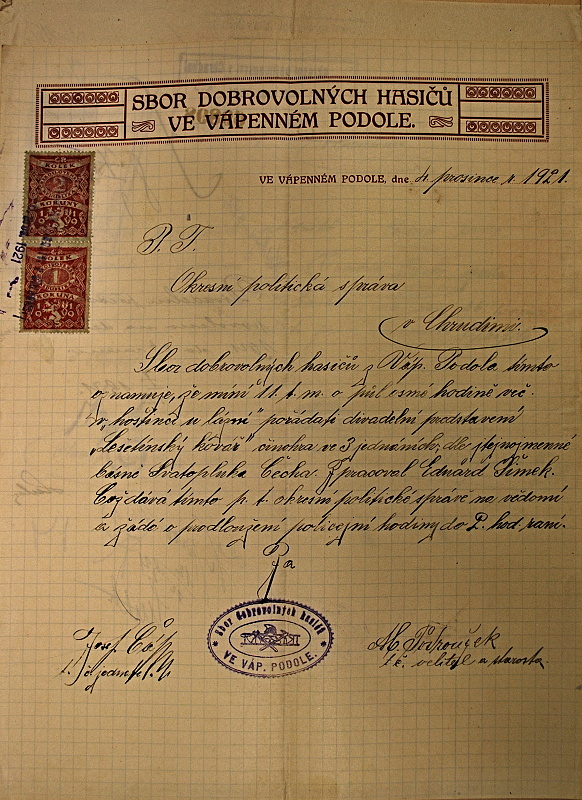 SBOR DOBROVOLNÝCH HASIČŮ
VE VÁPENNÉM PODOLE.
VE VÁPENNÉM PODOLE, dne 4. prosince r. 1921.
P. T.
Okresní politická správa
v Chrudimi.
Sbor dobrovolných hasičů z Váp. Podola tímto
oznamuje, že míní 11. t. m. o půl osmé hodině več.
v „hostinci u lázní" pořádati divadelní představení
„Lešetínský kovář" činohra ve 3 jednáních, dle stejnojmenné
básně Svatopluka Čecha. Zpracoval Eduard Šimek.
Což dává tímto p. t. okresní politické správě na vědomí
a žádá o prodloužení policejní hodiny do 2. hod. ranní.
Za
Sbor dobrovolných hasičů
VE VÁP. PODOLE.
Josef Čáp
t. č. jednatel
M. Podhouček
t. č. velitel a starosta.
ČR.
KOLEK
2
KORUNY
1921
ČR.
KOLEK
1
KORUNA